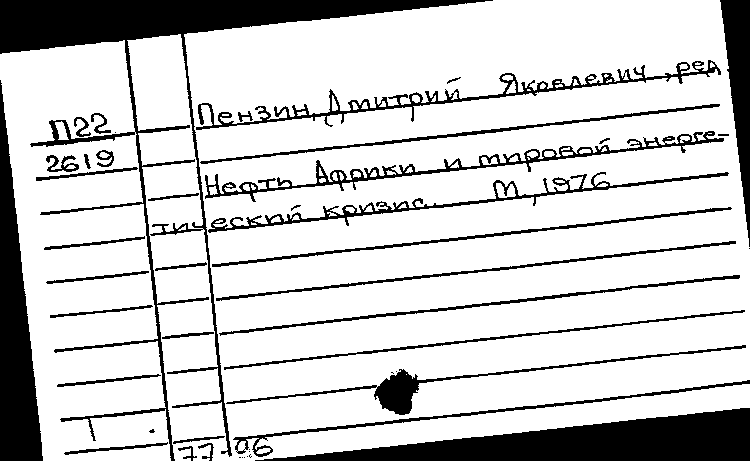 П22
2619
Пензин, Дмитрий Яковлевич, ред.
Нефть Африки и мировой энерге-
тический кризис. М, 1976
77-96